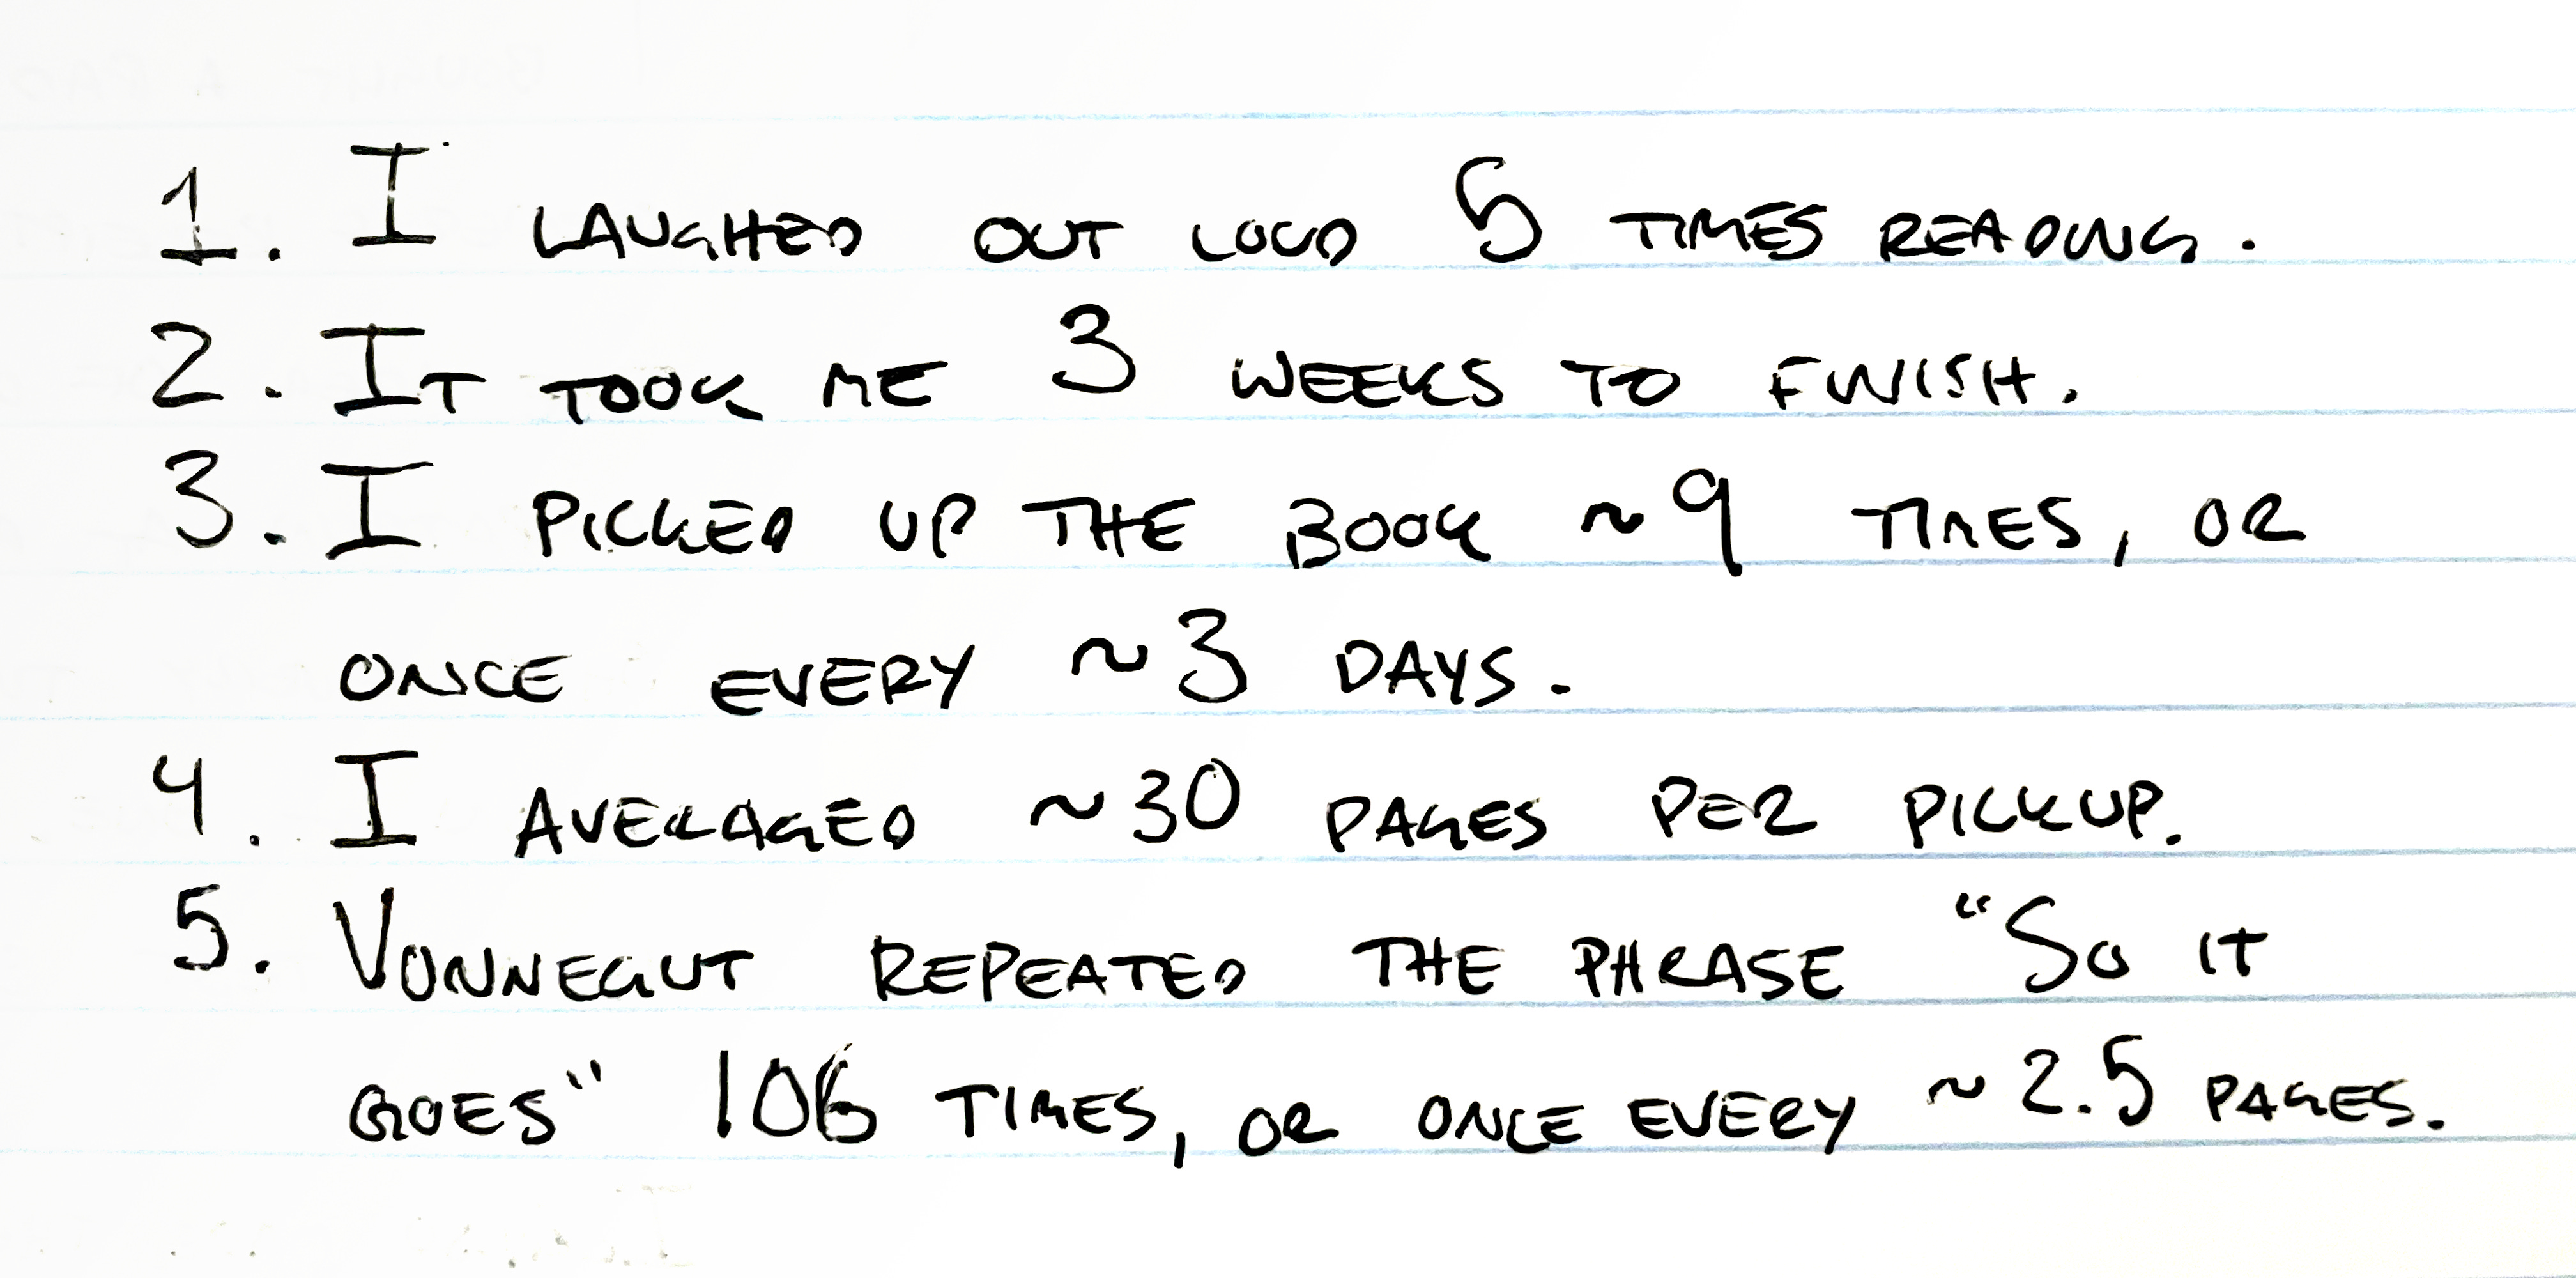 1. I LAUGHED OUT LOUD 5 TIMES READING.
2. IT TOOK ME 3 WEEKS TO FINISH.
3. I PICKED UP THE BOOK ~9 TIMES, OR
ONCE EVERY ~3 DAYS.
4. I AVERAGED ~30 PAGES PER PICKUP.
5. VONNEGUT REPEATED THE PHRASE "SO IT
GOES" 106 TIMES, OR ONCE EVERY ~2.5 PAGES.